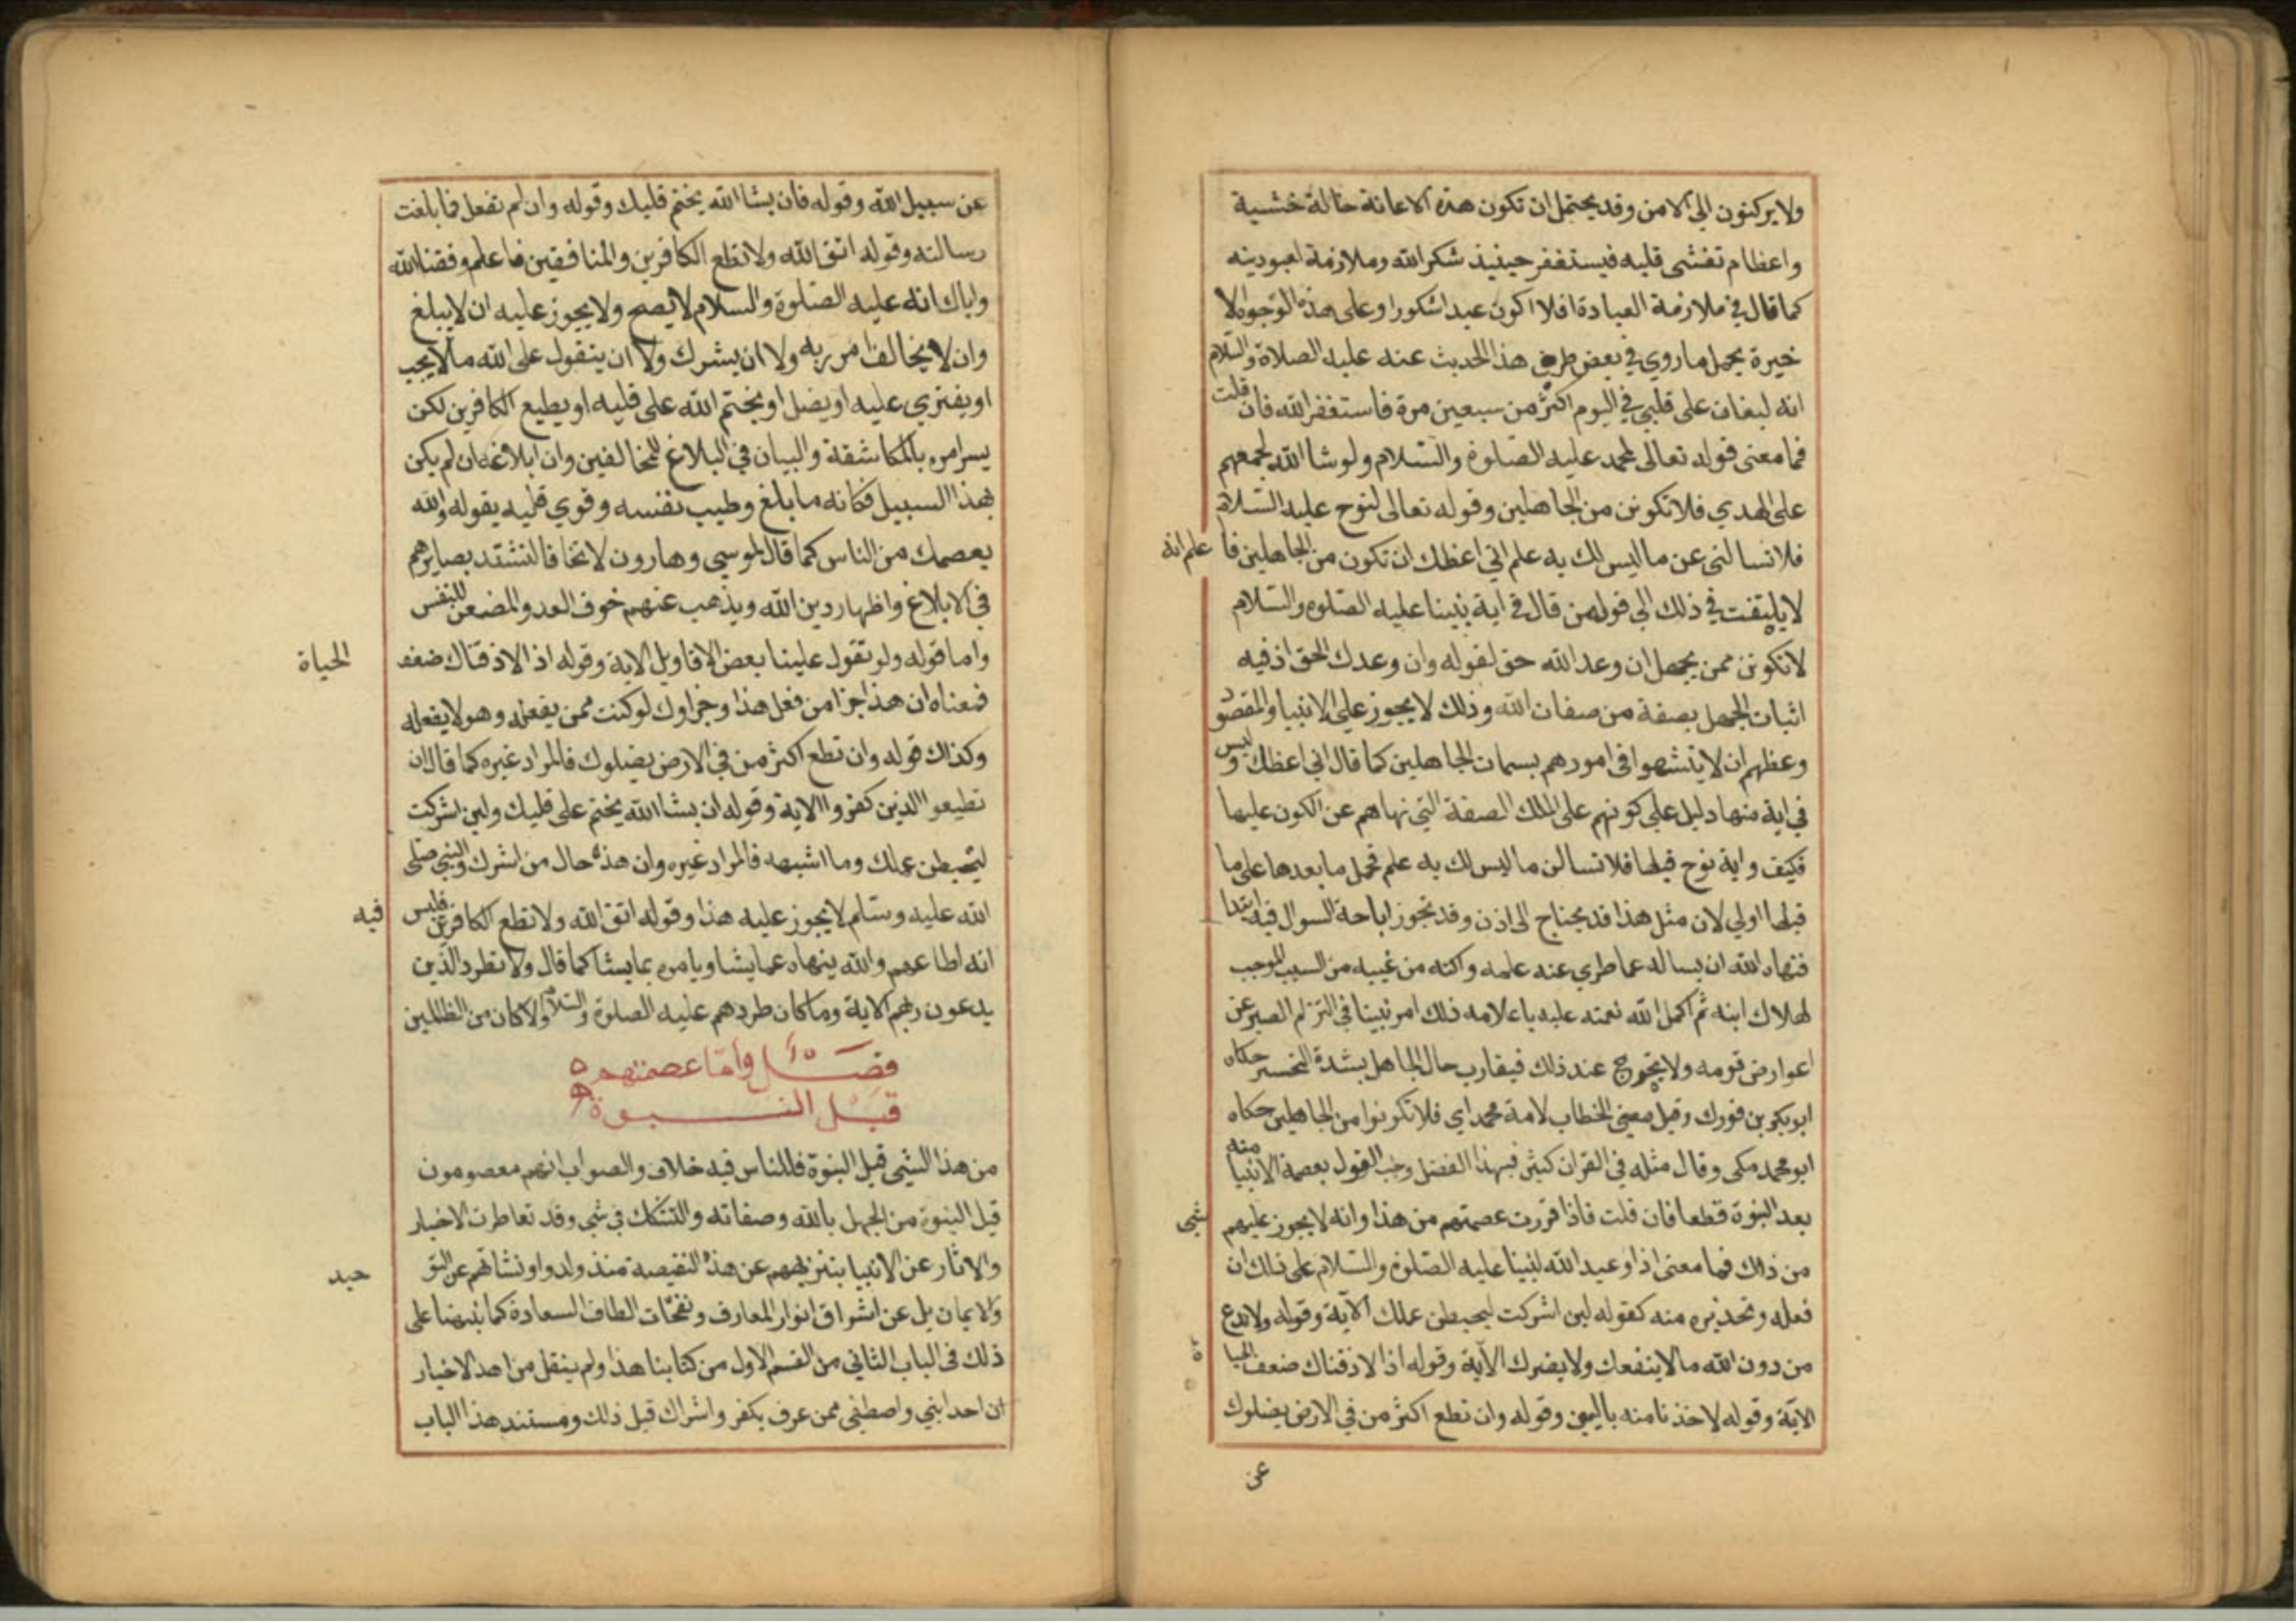 ولا يركنون الي الامن وقد يحتمل ان تكون هذه الاعانة حالة خشية
واعظام تغشى قلبه فيستغفر حينيذ شكر الله وملازمة لعبوديته
كما قال في ملازمة العبادة افلا اكون عبدا شكورا وعلى هذه الوجوه الا
خيرة يحمل ما روي في بعض طرق هذا الحديث عنه عليه الصلاة والسلام
انه ليغان على قلبي في اليوم اكثر من سبعين مرة فاستغفر الله فان قلت
فما معنى قوله تعالى لمحمد عليه الصلوة والسلام ولو شا الله لجمعهم
على الهدي فلا تكونن من الجاهلين وقوله تعالى لنوح عليه السلام
فلا تسالني عن ما ليس لك به علم اني اعظك ان تكون من الجاهلين فا علم انه
لا يلتفت في ذلك الي قول من قال في اية نبينا عليه الصلوة والسلام
لا تكونن ممن يجهل ان وعد الله حق لقوله وان وعدك الحق اذ فيه
اثبات الجهل بصفة من صفات الله وذلك لا يجوز علي الانبيا والمقصود
وعظهم ان لا يتشبهوا في امورهم بسمات الجاهلين كما قال اني اعظك وليس
في اية منها دليل علي كونهم على تلك الصفة التي نهاهم عن الكون عليها
فكيف واية نوح قبلها فلا تسالن ما ليس لك به علم فحمل ما بعدها على ما
قبلها اولي لان مثل هذا قد يحتاج الى اذن وقد تجوز اباحة السوال فيه ابتدا
فنهاه الله ان يساله عما طوي عنه علمه واكنه من غيبه من السبب الموجب
لهلاك ابنه ثم اكمل الله نعمته عليه باعلامه ذلك امر نبينا في التزام الصبر عن
اعوارض قومه ولا يحوج عند ذلك فيقارب حال الجاهل بشدة التحسر حكاه
ابو بكر بن فورك وقيل معنى الخطاب لامة محمد اي فلا تكونوا من الجاهلين حكاه
ابو محمد مكى وقال مثله في القران كثير فبهذا الفضل وجب القول بعصمة الانبيا منه
بعد النبوة قطعا فان قلت فاذا قررت عصمتهم من هذا وانه لا يجوز عليهم شي
من ذلك فما معنى اذا وعيد الله لنبينا عليه الصلوة والسلام على ذلك ان
فعله وتحذيره منه كقوله لين اشركت ليحبطن عملك الاية وقوله ولا تدع
من دون الله ما لا ينفعك ولا يضرك الاية وقوله اذا لاذقناك ضعف الحيا ة
الاية وقوله لاخذنا منه باليمين وقوله وان تطع اكثر من في الارض يضلوك
عن
عن سبيل الله وقوله فان يشا الله يختم قلبك وقوله وان لم تفعل فما بلغت
رسالته وقوله اتق الله ولا تطع الكافرين والمنافقين فاعلم وفقنا الله
واياك انه عليه الصلوة والسلام لا يصح ولا يجوز عليه ان لا يبلغ
وان لا يخالف امر ربه ولا ان يشرك ولا ان يتقول على الله ما لا يجب
او يفتري عليه او يضل او يختم الله على قلبه او يطيع الكافرين لكن
يسر امره بالمكاشفة والبيان في البلاغ للمخالفين وان ابلاغه ان لم يكن
بهذا السبيل فكانه ما بلغ وطيب نفسه وقوي قلبه بقوله والله
يعصمك من الناس كما قال لموسي وهارون لا تخافا لتشتد بصايرهم
في الابلاغ واظهار دين الله ويذهب عنهم خوف العدو المضعف للنفس
واما قوله ولو تقول علينا بعض الاقاويل الاية وقوله اذا لاذقناك ضعف الحياة
فمعناه ان هذا جزا من فعل هذا وجزاوك لو كنت ممن يفعله وهو لا يفعله
وكذلك قوله وان تطع اكثر من في الارض يضلوك فالمراد غيره كما قال ان
تطيعوا الذين كفروا الاية وقوله ان يشا الله يختم على قلبك ولين اشركت
ليحبطن عملك وما اشبهه فالمراد غيره وان هذه حال من اشرك والنبي صلى
الله عليه وسلم لا يجوز عليه هذا وقوله اتق الله ولا تطع الكافرين فليس فيه
انه اطاعهم والله ينهاه عما يشا ويامره بما يشا كما قال ولا تطرد الذين
يدعون ربهم الاية وما كان طردهم عليه الصلوة والسلام ولا كان من الظالمين
فصل واما عصمتهم
قبل النبوة
من هذا الشي قبل النبوة فللناس فيه خلاف والصواب انهم معصومون
قبل النبوة من الجهل بالله وصفاته والتشكك في شي وقد تعاطرت الاخبار
والاثار عن الانبيا بتنزيههم عن هذه النقيصة منذ ولدوا ونشاتهم عن التو حيد
والايمان بل عن اشراق انوار المعارف ونفحات الطاف السعادة كما نبهنا على
ذلك في الباب الثاني من القسم الاول من كتابنا هذا ولم ينقل من اهد الاخبار
ان احدا نبي واصطفي ممن عرف بكفر واشراك قبل ذلك ومستند هذا الباب